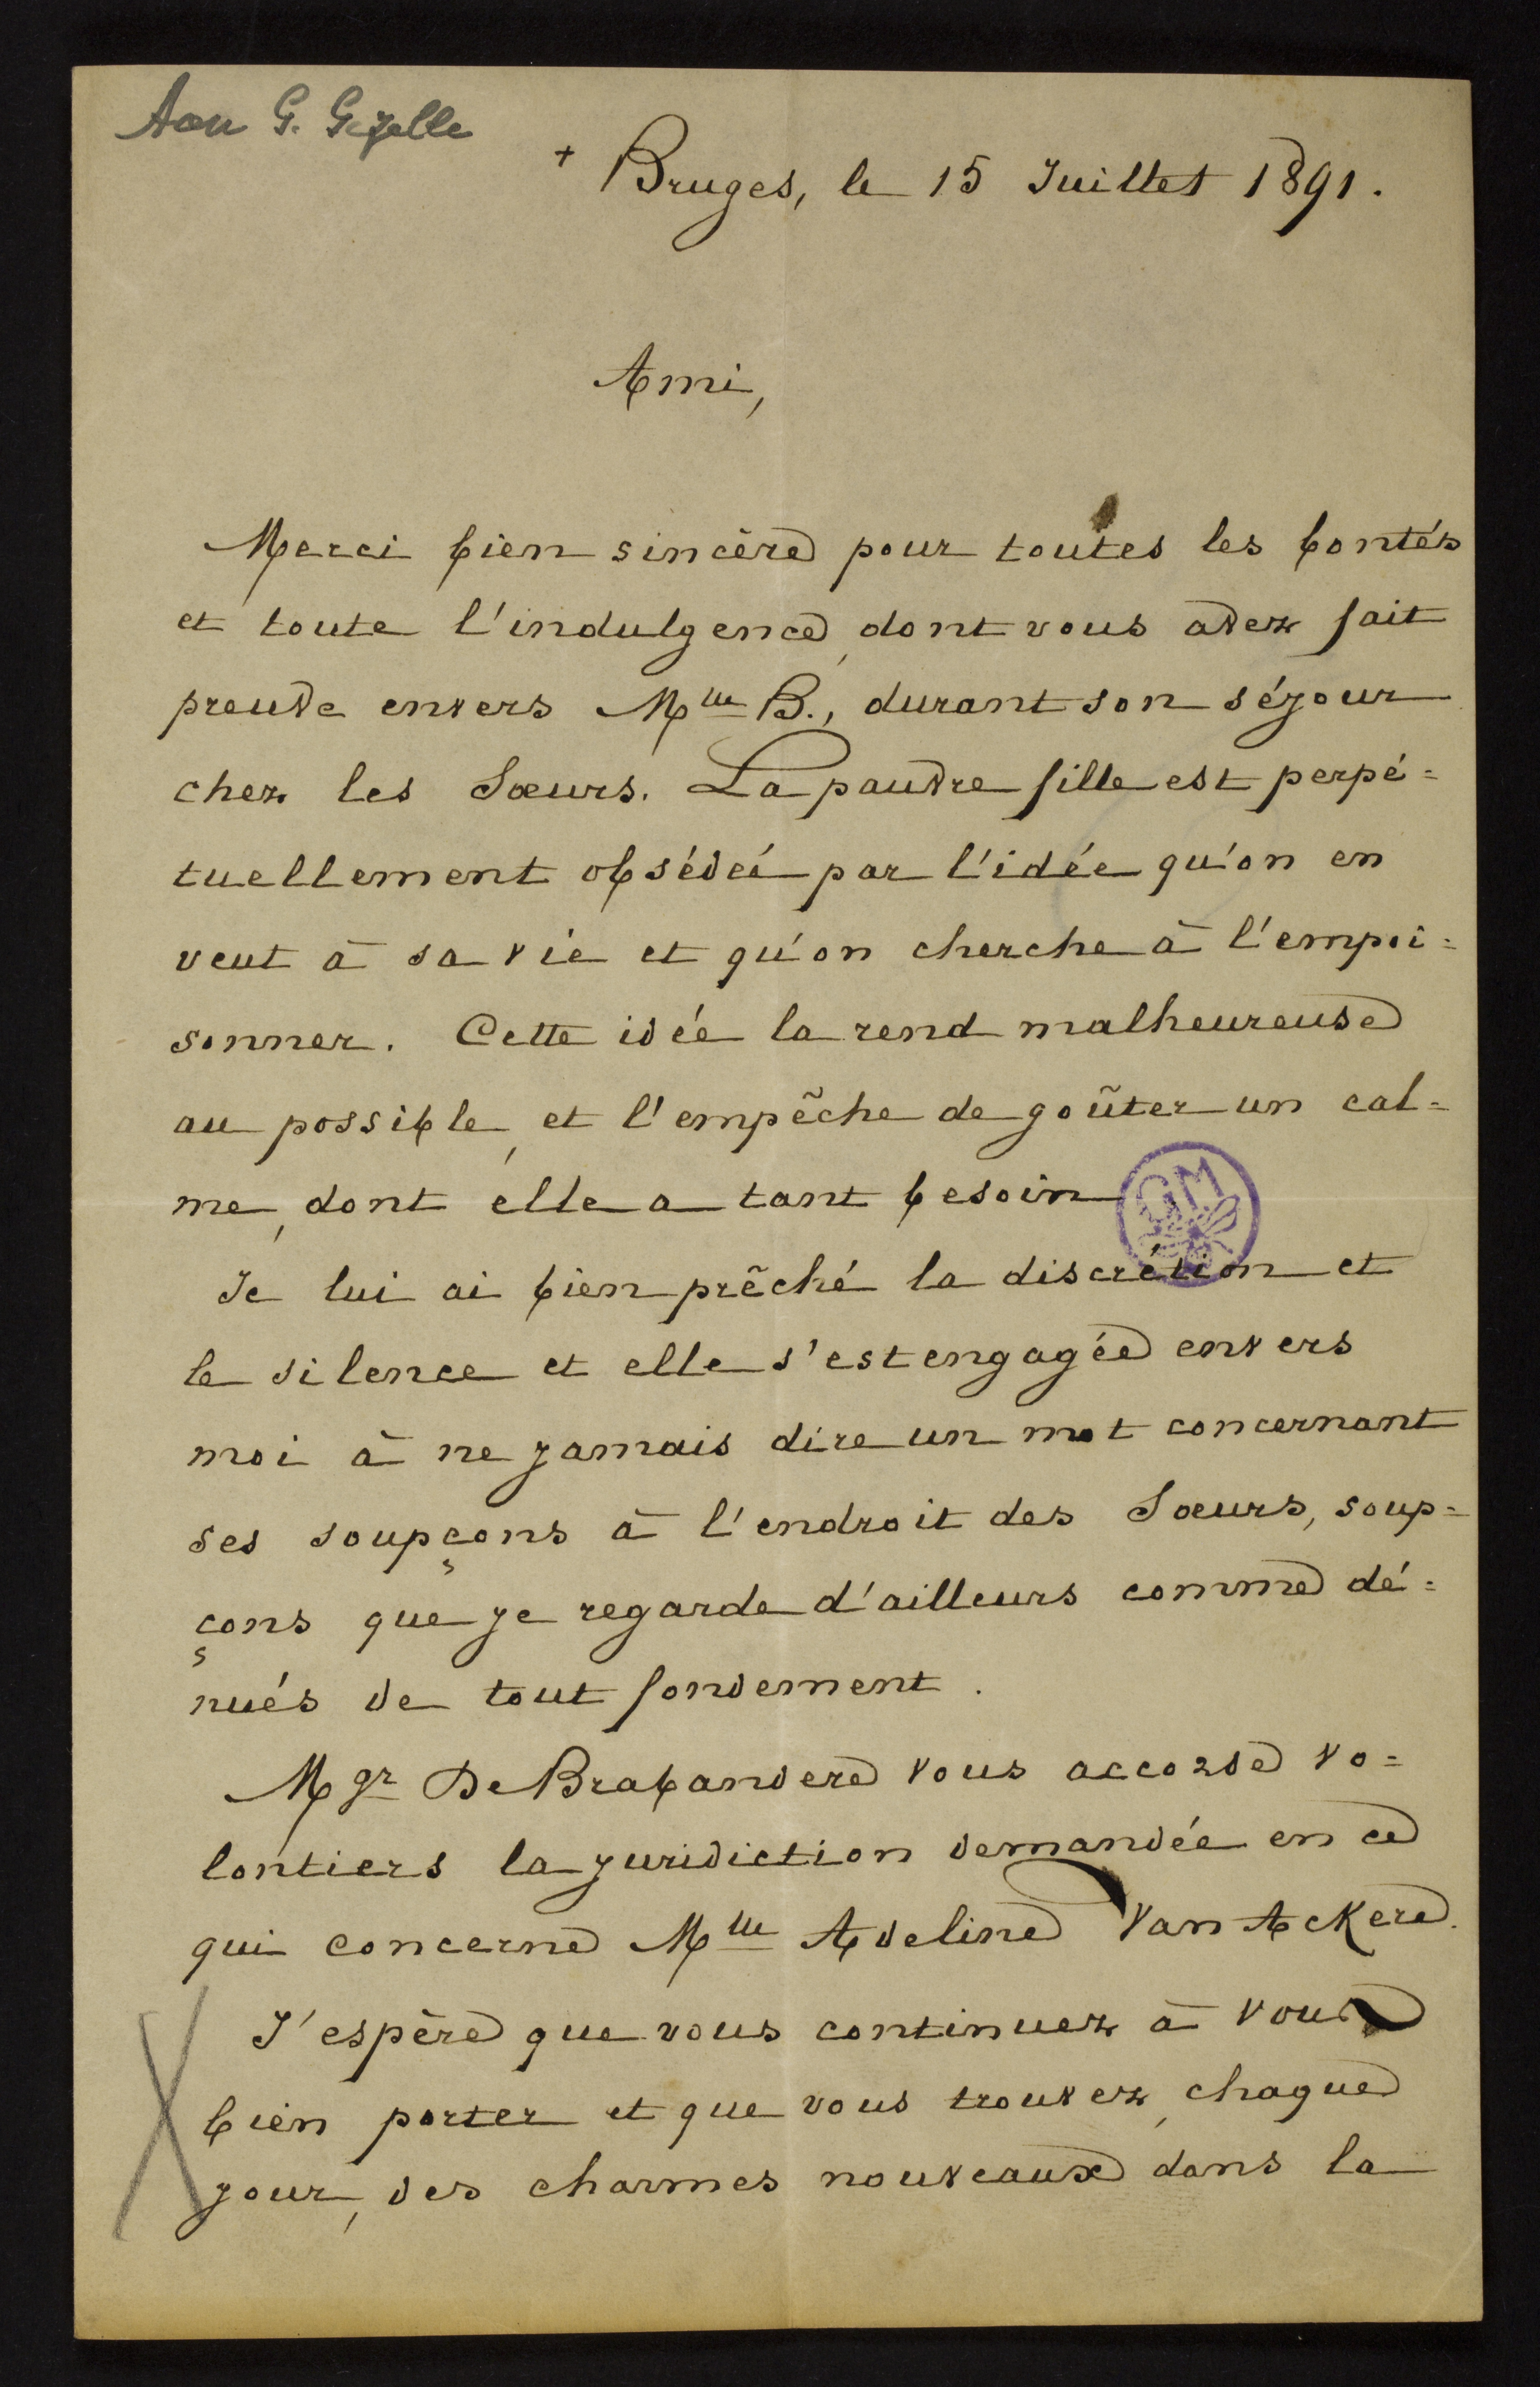 Aan G. Gezelle
+ Bruges, le 15 Juillet 1891.
Ami,
Merci bien sincère pour toutes les bontés
et toute l'indulgence, dont vous avez fait
preuve envers Mlle B., durant son séjour
chez les Sœurs. La pauvre fille est perpé=
tuellement obsédée par l'idée qu'on en
veut à sa vie et qu'on cherche à l'empoi=
sonner. Cette idée la rend malheureuse
au possible, et l'empêche de goûter un cal=
me, dont elle a tant besoin
GM
Je lui ai bien prêché la discrétion et
le silence et elle s'est engagée envers
moi à ne jamais dire un mot concernant
ses soupçons à l'endroit des Sœurs, soup=
çons que je regarde d'ailleurs comme dé=
nués de tout fondement.
Mgr De Brabandere vous accorde vo=
lontiers la juridiction demandée en ce
qui concerne Mlle Adeline Van Ackere.
J'espère que vous continuez à vous
bien porter et que vous trouvez, chaque
jour, des charmes nouveaux dans la